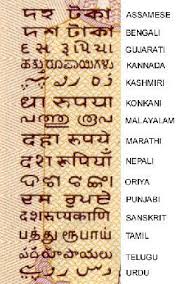 দহ টকা ASSAMESE
দশ টাকা BENGALI
દસ રૂપિયા GUJARATI
ಹತ್ತು ರೂಪಾಯಿಗಳು KANNADA
KASHMIRI
धा रुपया KONKANI
പത്തു രൂപ MALAYALAM
दहा रुपये MARATHI
दश रुपियाँ NEPALI
ଦଶ ଟଙ୍କା ORIYA
ਦਸ ਰੁਪਏ PUNJABI
दशरूप्यकाणि SANSKRIT
பத்து ரூபாய் TAMIL
పది రూపాయలు TELUGU
دس روپے URDU